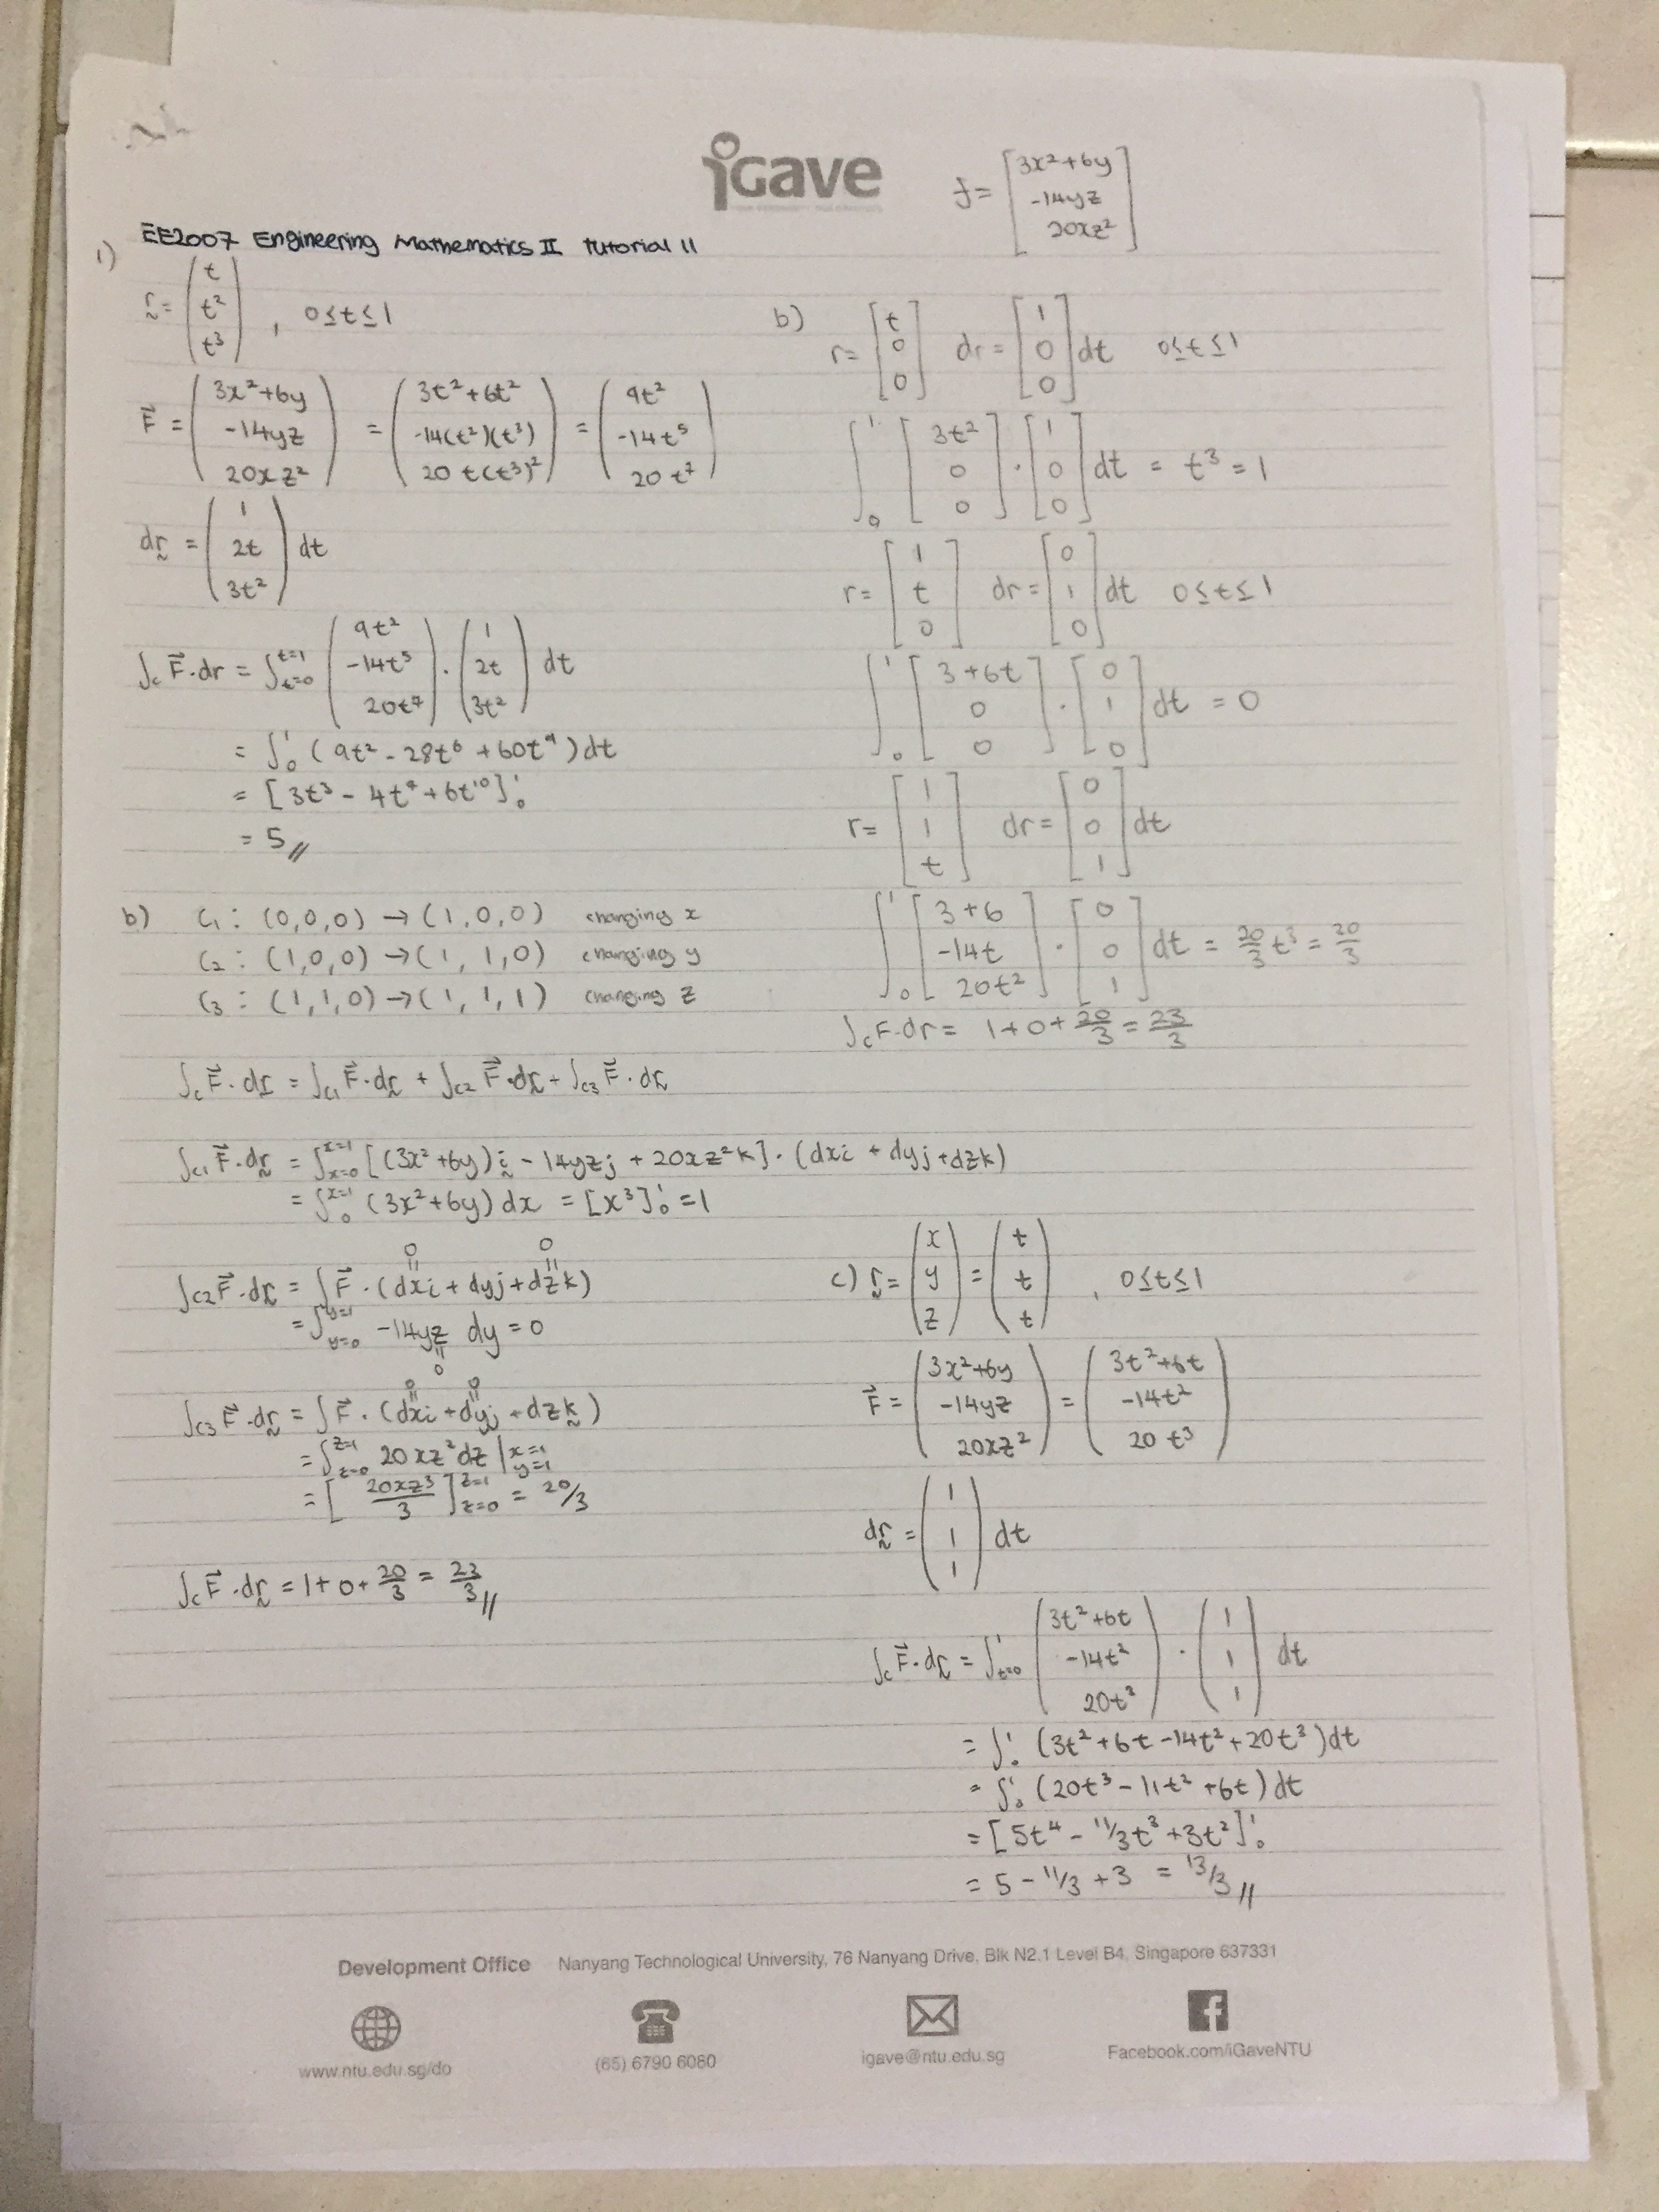 iGave
f = [3x²+6y
-14yz
20xz²]
EE2007 Engineering Mathematics II Tutorial 11
1)
r = (t
t²
t³) , 0≤t≤1
F⃗ = (3x²+6y
-14yz
20xz²) = (3t²+6t²
-14(t²)(t³)
20t(t³)²) = (9t²
-14t⁵
20t⁷)
dr = (1
2t
3t²) dt
∫c F⃗·dr = ∫t=0 t=1 (9t²
-14t⁵
20t⁷) · (1
2t
3t²) dt
= ∫₀¹ (9t² - 28t⁶ + 60t⁹)dt
= [3t³ - 4t⁷ + 6t¹⁰]₀¹
= 5 //
b) C₁ : (0,0,0) → (1,0,0) changing x
C₂ : (1,0,0) → (1, 1,0) changing y
C₃ : (1,1,0) → (1, 1, 1) changing z
∫c F⃗·dr = ∫c₁ F⃗·dr + ∫c₂ F⃗·dr + ∫c₃ F⃗·dr
∫c₁ F⃗·dr = ∫x=0 x=1 [(3x²+6y)i - 14yzj + 20xz²k] · (dxi + dyj + dzk)
= ∫₀ x=1 (3x²+6y)dx = [x³]₀¹ = 1
0 0
∫c₂ F⃗·dr = ∫F⃗ · (dxi + dyj + dzk)
= ∫y=0 y=1 -14yz dy = 0
0
0 0
∫c₃ F⃗·dr = ∫F⃗ · (dxi + dyj + dzk)
= ∫z=0 z=1 20xz²dz | x=1 y=1
= [20xz³/3] z=1 z=0 = 20/3
∫c F⃗·dr = 1 + 0 + 20/3 = 23/3 //
b)
r = [t
0
0] dr = [1
0
0] dt 0≤t≤1
∫₀¹ [3t²
0
0] · [1
0
0] dt = t³ = 1
r = [1
t
0] dr = [0
1
0] dt 0≤t≤1
∫₀¹ [3+6t
0
0] · [0
1
0] dt = 0
r = [1
1
t] dr = [0
0
1] dt
∫₀¹ [3+6
-14t
20t²] · [0
0
1] dt = 20/3 t³ = 20/3
∫c F·dr = 1+0+20/3 = 23/3
c) r = (x
y
z) = (t
t
t) , 0≤t≤1
F⃗ = (3x²+6y
-14yz
20xz²) = (3t²+6t
-14t²
20t³)
dr = (1
1
1) dt
∫c F⃗·dr = ∫t=0 1 (3t²+6t
-14t²
20t³) · (1
1
1) dt
= ∫₀¹ (3t²+6t-14t²+20t³)dt
= ∫₀¹ (20t³-11t²+6t)dt
= [5t⁴ - 11/3t³ + 3t²]₀¹
= 5 - 11/3 + 3 = 13/3 //
Development Office Nanyang Technological University, 76 Nanyang Drive, Blk N2.1 Level B4, Singapore 637331
www.ntu.edu.sg/do (65) 6790 6080 igave@ntu.edu.sg Facebook.com/iGaveNTU